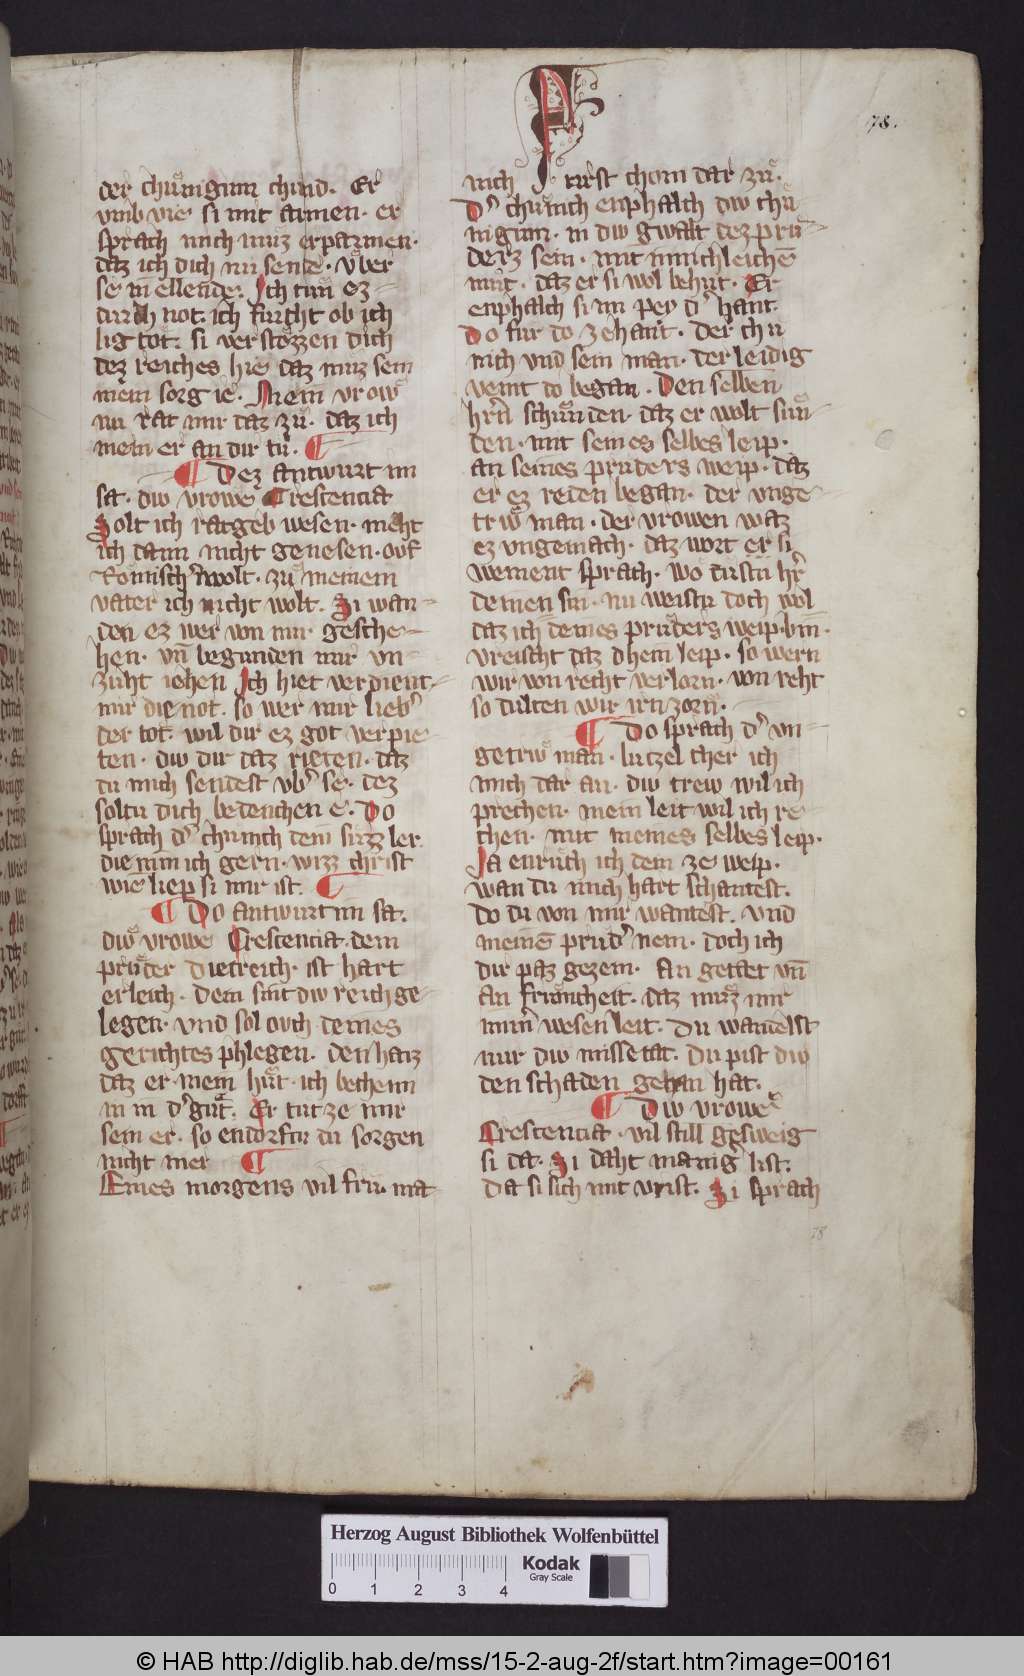 78.
der chuͤniginn chind. Er
vmb vie si mit armen. er
sprach mich muz erparmen.
daz ich dich nu sende. vͤber
se in ellende. Ich tun ez
durch not. ich furcht ob ich
lig tot. si verstozzen dich
dez reiches hie daz muz sein
mein sorg ie. Mein vrowͤ
nu rat mir daz zuͤ. daz ich
mein er an dir tuͤ. ¶
¶ Dez antwurt im
sa. diw vrowe Crescencia
Solt ich ratgeb wesen. meht
ich dann nicht genesen. ouf
Romischerwolt. zuͤ meinem
vater ich nicht wolt. Si wan-
den ez wer von mir gesche-
hen. vn̄ begunden mir vn-
zuht iehen Ich hiet verdient.
mir die not. so wer mir lieb'
der tot. wil dir ez got verpie
ten. diw dir daz rieten. daz
du mich sendest vb' se. dez
soltu dich bedenchen e. Do
sprach d' chunich dem sitz ler.
die nim ich gern. wizz christ
wie liep si mir ist. ¶
¶ Do antwurt im sa.
diwͤ vrowe Crescencia. dem
pruͤder Dietreich. ist hart
erleich. dem sint diw reich ge-
legen. vnd sol ovch deines
gerichtes phlegen. den haiz
daz er mein huͤt. ich bechenn
in in d' guͤt. Er tut ze mir
sein er. so endorftu du sorgen
nicht mer ¶
Eines morgens vil fru. ma
nich furst chom dar zuͤ.
D' chuͤnich enphalch diw chuͤ
niginn. in diw gwalt dez pruͤ-
derz sein. mit minichleichē
mut. daz er si wol behut. Er
enphalch si im pey d' hant.
Do fur do zehant. der chu
nich vnd sein man. der leidig
veint do began. Den selben
hrn̄ schuͤnden. daz er wolt suͤn
den. mit seines selbes leip.
an seines pruders weip. daz
er ez reden began. der vnge-
trwͤ man. der vrowen waz
ez vngemach. daz wort er si
weinent sprach. wo tustu hr̄
deinen sin. nu weistu doch wol
daz ich deines pruders weip bin.
vreischt daz dhein leip. so wern
wir von recht verlorn. von reht
so dulten wir irn zorn.
¶ Do sprach d' vn-
getrwͤ man. lutzel cher ich
mich dar an. diw trew wil ich
prechen. mein leit wil ich re-
chen. mit meines selbes leip.
Ja enruͤch ich dein ze weip.
wan du mich hart schantest.
do du von mir wantest. vnd
meinē prud' nem. doch ich
dir paz gezem. An getat vn̄
an fruͤmcheit. daz muͤz mir
imm̄ wesen leit. Du wandelst
mir diw missetat. Du pist diw
den schaden getan hat.
¶ Diw vrowe
Crescencia. vil still gesweig
si da. Si daht manig list.
Da si sich mit vrist. Si sprach
78
Herzog August Bibliothek Wolfenbüttel
0 1 2 3 4
Kodak
Gray Scale
© HAB http://diglib.hab.de/mss/15-2-aug-2f/start.htm?image=00161